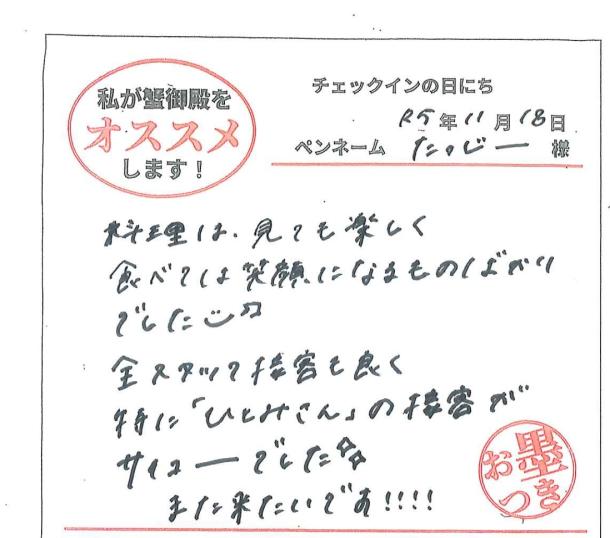 私が蟹御殿を
オススメ
します!
チェックインの日にち
R5年11月18日
ペンネーム たっじー 様
料理は、見ても楽しく
食べては笑顔になるものばかり
でした
全スタッフ接客も良く
特に「ひとみさん」の接客が
サイコーでした☆☆
また来たいです!!!!
お墨
つき